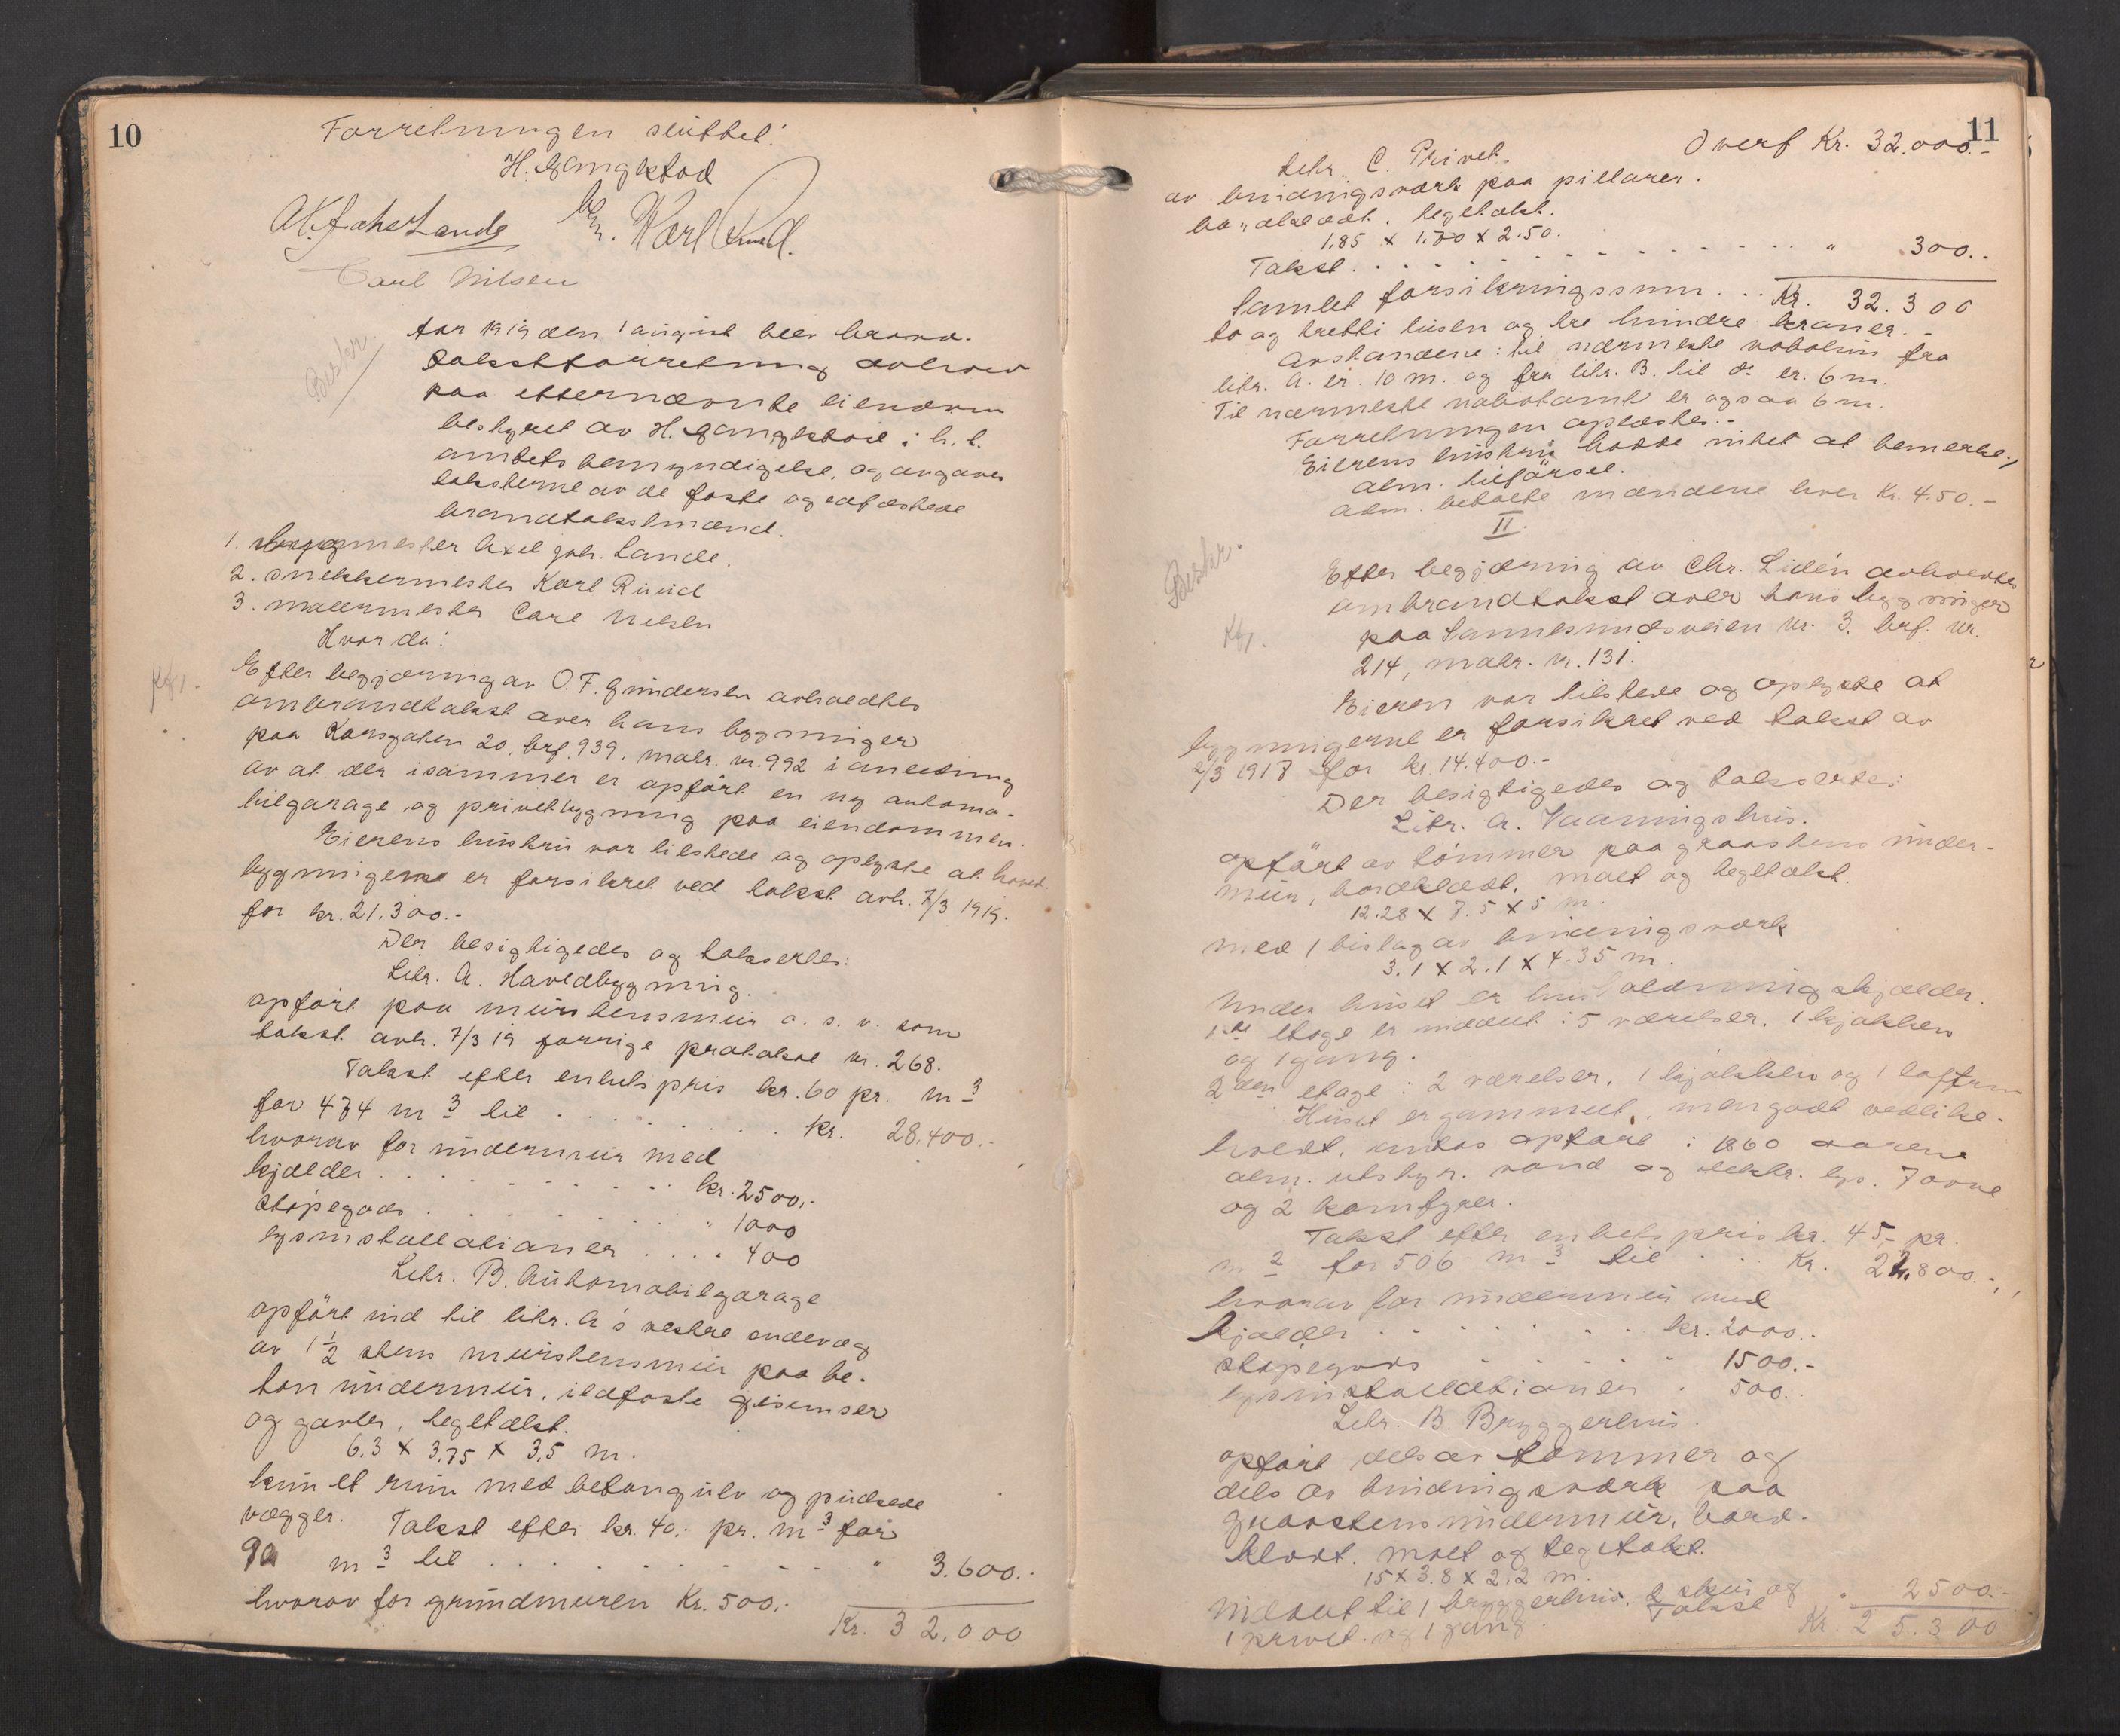 10
Forretningen sluttet.
H. Gangstad
Joh. Lande Karl Ruud.
Carl Nilsen
Beskr
Aar 1919 den 1 august blev brand-
takstforretning avholdt
paa efternævnte eiendom
bestyret av H. Gangstad i h. t.
amtets bemyndigelse, og avgaves
taksterne av de faste og edfæstede
brandtakstmænd.
1. byggmester Axel Joh. Lande.
2. snekkermester Karl Ruud
3. malermester Carl Nilsen
Hvorda:
Efter begjæring av O. F. Gundersen avholdtes
ombrandtakst over hans bygninger
paa Korsgaten 20, brf. 939, matr. nr. 992 i anledning
av at der i sommer er opført en ny automo-
bilgarage og privetbygning paa eiendommen.
Eierens hustru var tilstede og oplyste at hoved-
bygningerne er forsikret ved takst avh. 7/3 1919.
for kr. 21.300.-
Der besigtigedes og taksertes:
Litr. A. Hovedbygning.
opført paa murstensmur o. s. v. som
takst avh. 7/3 19 forrige protokol nr. 268.
Takst efter enhetspris kr. 60 pr. m3
for 474 m3 til . . . . . . . kr. 28.400.-
hvorav for undermur med
kjælder . . . . . . . . kr. 2500.-
støpegods . . . . . . . " 1000
lysinstallationer . . . . 400
Litr. B. Automobilgarage
opført ind til litr. A's vestre endevæg
av 1 1/2 stens murstensmur paa be-
ton undermur, ildfaste gesimser
og gavler, tegltækt.
6.3 x 3,75 x 3,5 m.
kun et rum med betongulv og pudsede
vægger. Takst efter kr. 40.- pr. m3 for
90 m3 til . . . . . . . . . . " 3.600.-
hvorav for grundmuren Kr. 500.-
Kr. 32.000
11
Overf Kr. 32.000.-
Litr. C. Privet.
av bindingsværk paa pillarer.
bordklædt. tegltækt.
1.85 x 1.70 x 2.50.
Takst. . . . . . . . . . . . " 300.-
Samlet forsikringssum . . Kr. 32.300
to og tretti tusen og tre hundre kroner.-
Avstandene: til nærmeste nabohus fra
litr. A. er. 10 m. og fra litr. B. til do er. 6 m.
Til nærmeste nabotomt er ogsaa 6 m.
Forretningen oplæstes.-
Eierens hustru hadde intet at bemerke,
alm. tilførsel.
alm. betalte mændene hver Kr. 4.50.-
II.
Beskr.
Efter begjæring av Chr. Lidén avholdtes
ombrandtakst over hans bygninger
paa Sannesundsveien nr. 3, brf. nr.
214, matr. nr. 131.
Eieren var tilstede og oplyste at
bygningerne er forsikret ved takst av
2/3 1917 for kr. 14.400.-
Der besigtigedes og takserte:
Litr. A. Vaaningshus.
opført av tømmer paa graastens under-
mur, bordklædt, malt og tegltækt.
12.28 x 7.5 x 5 m.
med 1 bislag av bindingsværk
3.1 x 2.1 x 4.35 m.
Under huset er husholdningskjælder.
1ste etage er inddelt i 5 værelser, 1 kjøkken
og 1 gang.
2den etage: 2 værelser, 1 kjøkken og 1 loftrum
Huset er gammelt, men godt vedlike-
holdt, antas opført i 1860 aarene
alm. utstyr. vand og elektr. lys. 7 ovne
og 2 komfyrer.
Takst efter enhetspris kr. 45,- pr.
m2 for 506 m3 til . . . Kr. 22.800.-
hvorav for undermur med
kjælder . . . . . . . kr. 2000.-
støpegods . . . . . 1500.-
lysinstallationer . 500.-
Litr. B. Bryggerhus.
opført dels av tømmer og
dels av bindingsværk paa
graastens undermur, bord-
klædt. malt og tegltækt.
15 x 3.8 x 2.2 m.
inddelt til 1 bryggerhus, 2 skur og
1 privet. og 1 gang. Takst " 2500.-
Kr. 25.300